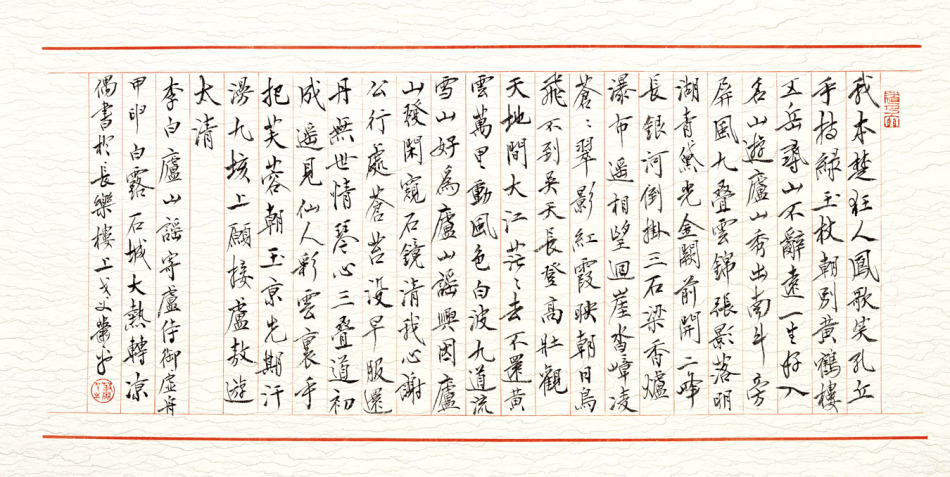 我本楚狂人鳳歌笑孔丘
手持緑玉杖朝別黃鶴樓
五岳尋山不辭遠一生好入
名山遊廬山秀出南斗旁
屏風九叠雲錦張影落明
湖青黛光金闕前開二峰
長銀河倒掛三石梁香爐
瀑布遥相望迴崖沓嶂凌
蒼〻翠影紅霞映朝日鳥
飛不到吳天長登高壯觀
天地間大江茫〻去不還黃
雲萬里動風色白波九道流
雪山好為廬山謠興因廬
山發閑窺石鏡清我心謝
公行處蒼苔没早服還
丹無世情琴心三叠道初
成遥見仙人彩雲裏手
把芙蓉朝玉京先期汗
漫九垓上願接盧敖遊
太清
李白廬山謠寄盧侍御虛舟
甲申白露石城大熱轉凉
偶書於長樂樓上